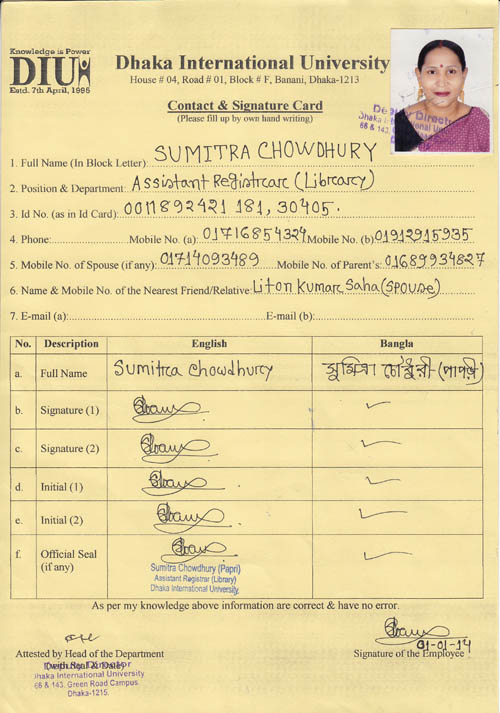 Knowledge is Power
DIU
Estd. 7th April, 1995
Dhaka International University
House # 04, Road # 01, Block # F, Banani, Dhaka-1213
Contact & Signature Card
(Please fill up by own hand writing)
1. Full Name (In Block Letter): SUMITRA CHOWDHURY
2. Position & Department: Assistant Registrar (Library)
3. Id No. (as in Id Card): 0011892421 181, 30405.
4. Phone: Mobile No. (a): 01716854324 Mobile No. (b) 01912915935
5. Mobile No. of Spouse (if any): 01714093489 Mobile No. of Parent's: 01689934827
6. Name & Mobile No. of the Nearest Friend/Relative: Liton Kumar Saha (Spouse)
7. E-mail (a): E-mail (b):
No. Description English Bangla
a. Full Name Sumitra Chowdhury সুমিত্রা চৌধুরী-(পাপড়ী)
b. Signature (1)
c. Signature (2)
d. Initial (1)
e. Initial (2)
f. Official Seal
(if any)
Sumitra Chowdhury (Papri)
Assistant Registrar (Library)
Dhaka International University.
As per my knowledge above information are correct & have no error.
01-01-14
Attested by Head of the Department Signature of the Employee
(with Seal & Date)
Dhaka International University
66 & 143, Green Road Campus
Dhaka-1215.